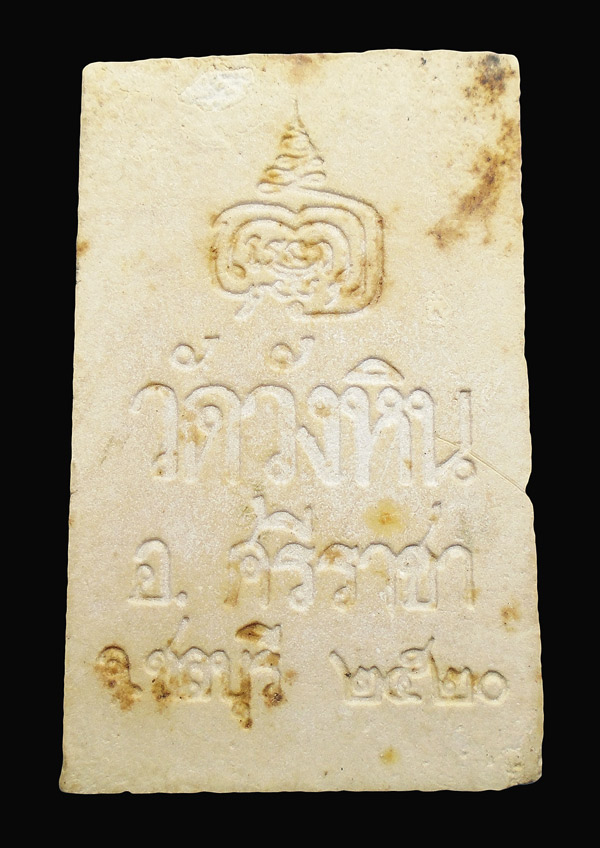 วัดวังหิน
อ. ศรีราชา
จ.ชลบุรี ๒๕๒๐